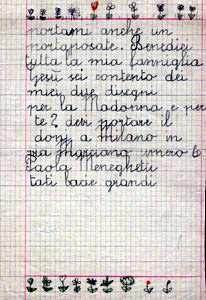 portami anche un
portaposate. Benedici
tutta la mia famniglia
Gesù sei contento dei
miei due disegni
per la Madonna e per
te? devi portare il
doni a Milano in
via Marciano nmero 6
Paola Meneghetti
tati bacie grandi